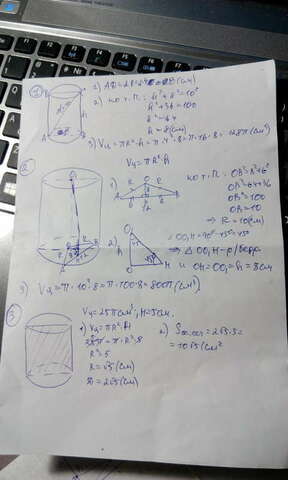 1
1) AD=2R=2·
2) по т. П.: h²+6²=10²
h²+36=100
h²=64
h=8(см)
3) Vц=πR²·h=π·4²·8=π·16·8=128π(см³)
2
Vц=πR²·h
1)
по т. П.: OB²=8²+6²
OB²=64+36
OB²=100
OB=10
⇒ R=10(см)
2)
∠OO₁H=90°-45°=45°
⇒ △OO₁H-р/бедр.
и OH=OO₁=h=8см
3) Vц=π·10²·8=π·100·8=800π(см³)
3
Vц=25πсм³, H=5см.
1) Vц=πR²·H
25π=π·R²·5
R²=5
R=√5(см)
D=2√5(см)
2) Sос.сеч=2√5·5=
=10√5(см²